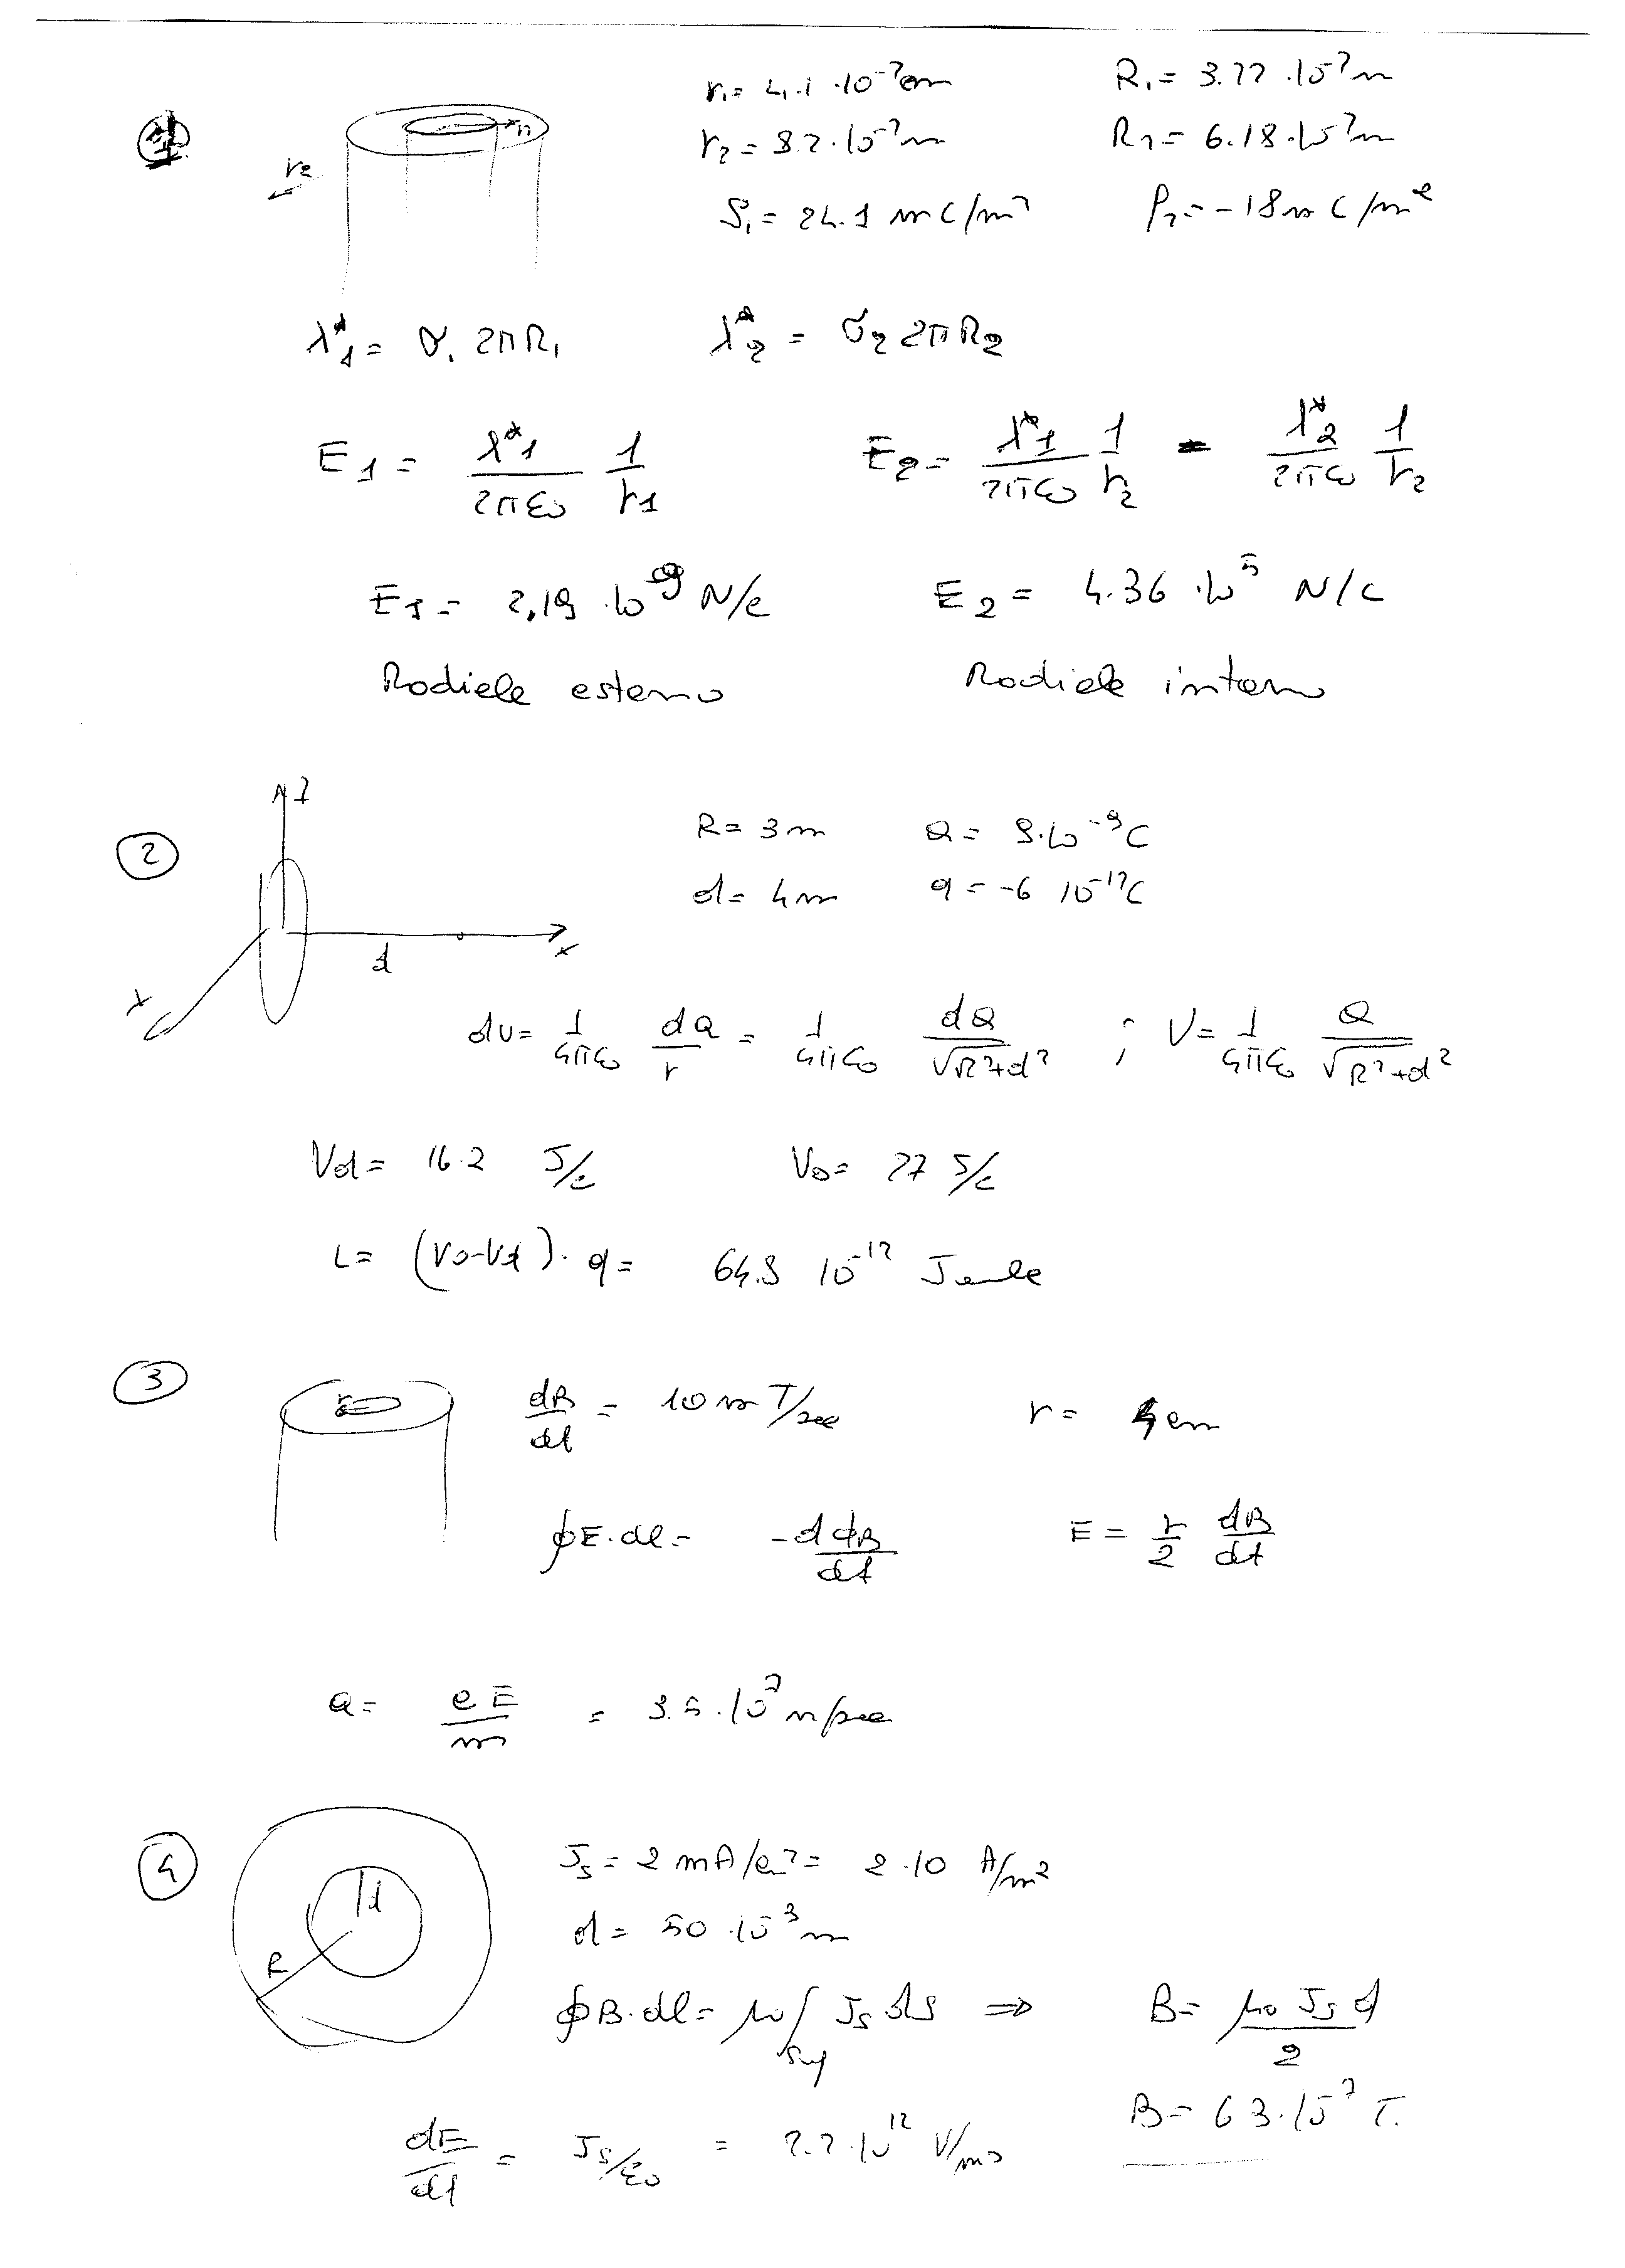 1 r₁ = 4.1 · 10⁻² m R₁ = 3.22 · 10⁻² m
r₂ r₁ r₂ = 8.2 · 10⁻² m R₂ = 6.18 · 10⁻² m
ρ₁ = 24.1 mC/m² ρ₂ = -18 mC/m²
λ*₁ = σ₁ 2πR₁ λ*₂ = σ₂ 2πR₂
E₁ = λ*₁/2πε₀ 1/r₁ E₂ = λ*₁/2πε₀ 1/r₂ - λ*₂/2πε₀ 1/r₂
E₁ = 2,19 · 10⁹ N/C E₂ = 4.36 · 10⁵ N/C
Radiale esterno Radiale interno
2 z R = 3 m Q = 9 · 10⁻⁹ C
d = 4 m q = -6 10⁻¹² C
d x
dV = 1/4πε₀ dQ/r = 1/4πε₀ dQ/√R²+d² ; V = 1/4πε₀ Q/√R²+d²
Vd = 16.2 J/C V₀ = 27 J/C
L = (V₀-Vd) · q = 64.8 10⁻¹² Joule
3 r dB/dt = 10 mT/sec r = 4 cm
∮E·dl = -dϕB/dt E = r/2 dB/dt
a = eE/m = 3.5 · 10⁷ m/sec
4 d R Js = 2 mA/cm² = 2·10 A/m²
d = 50 · 10⁻³ m
∮B·dl = μ₀∫sup Js ds ⇒ B = μ₀ Js d/2
B = 63 · 10⁻² T.
dE/dt = Js/ε₀ = 2.2 · 10¹² V/ms